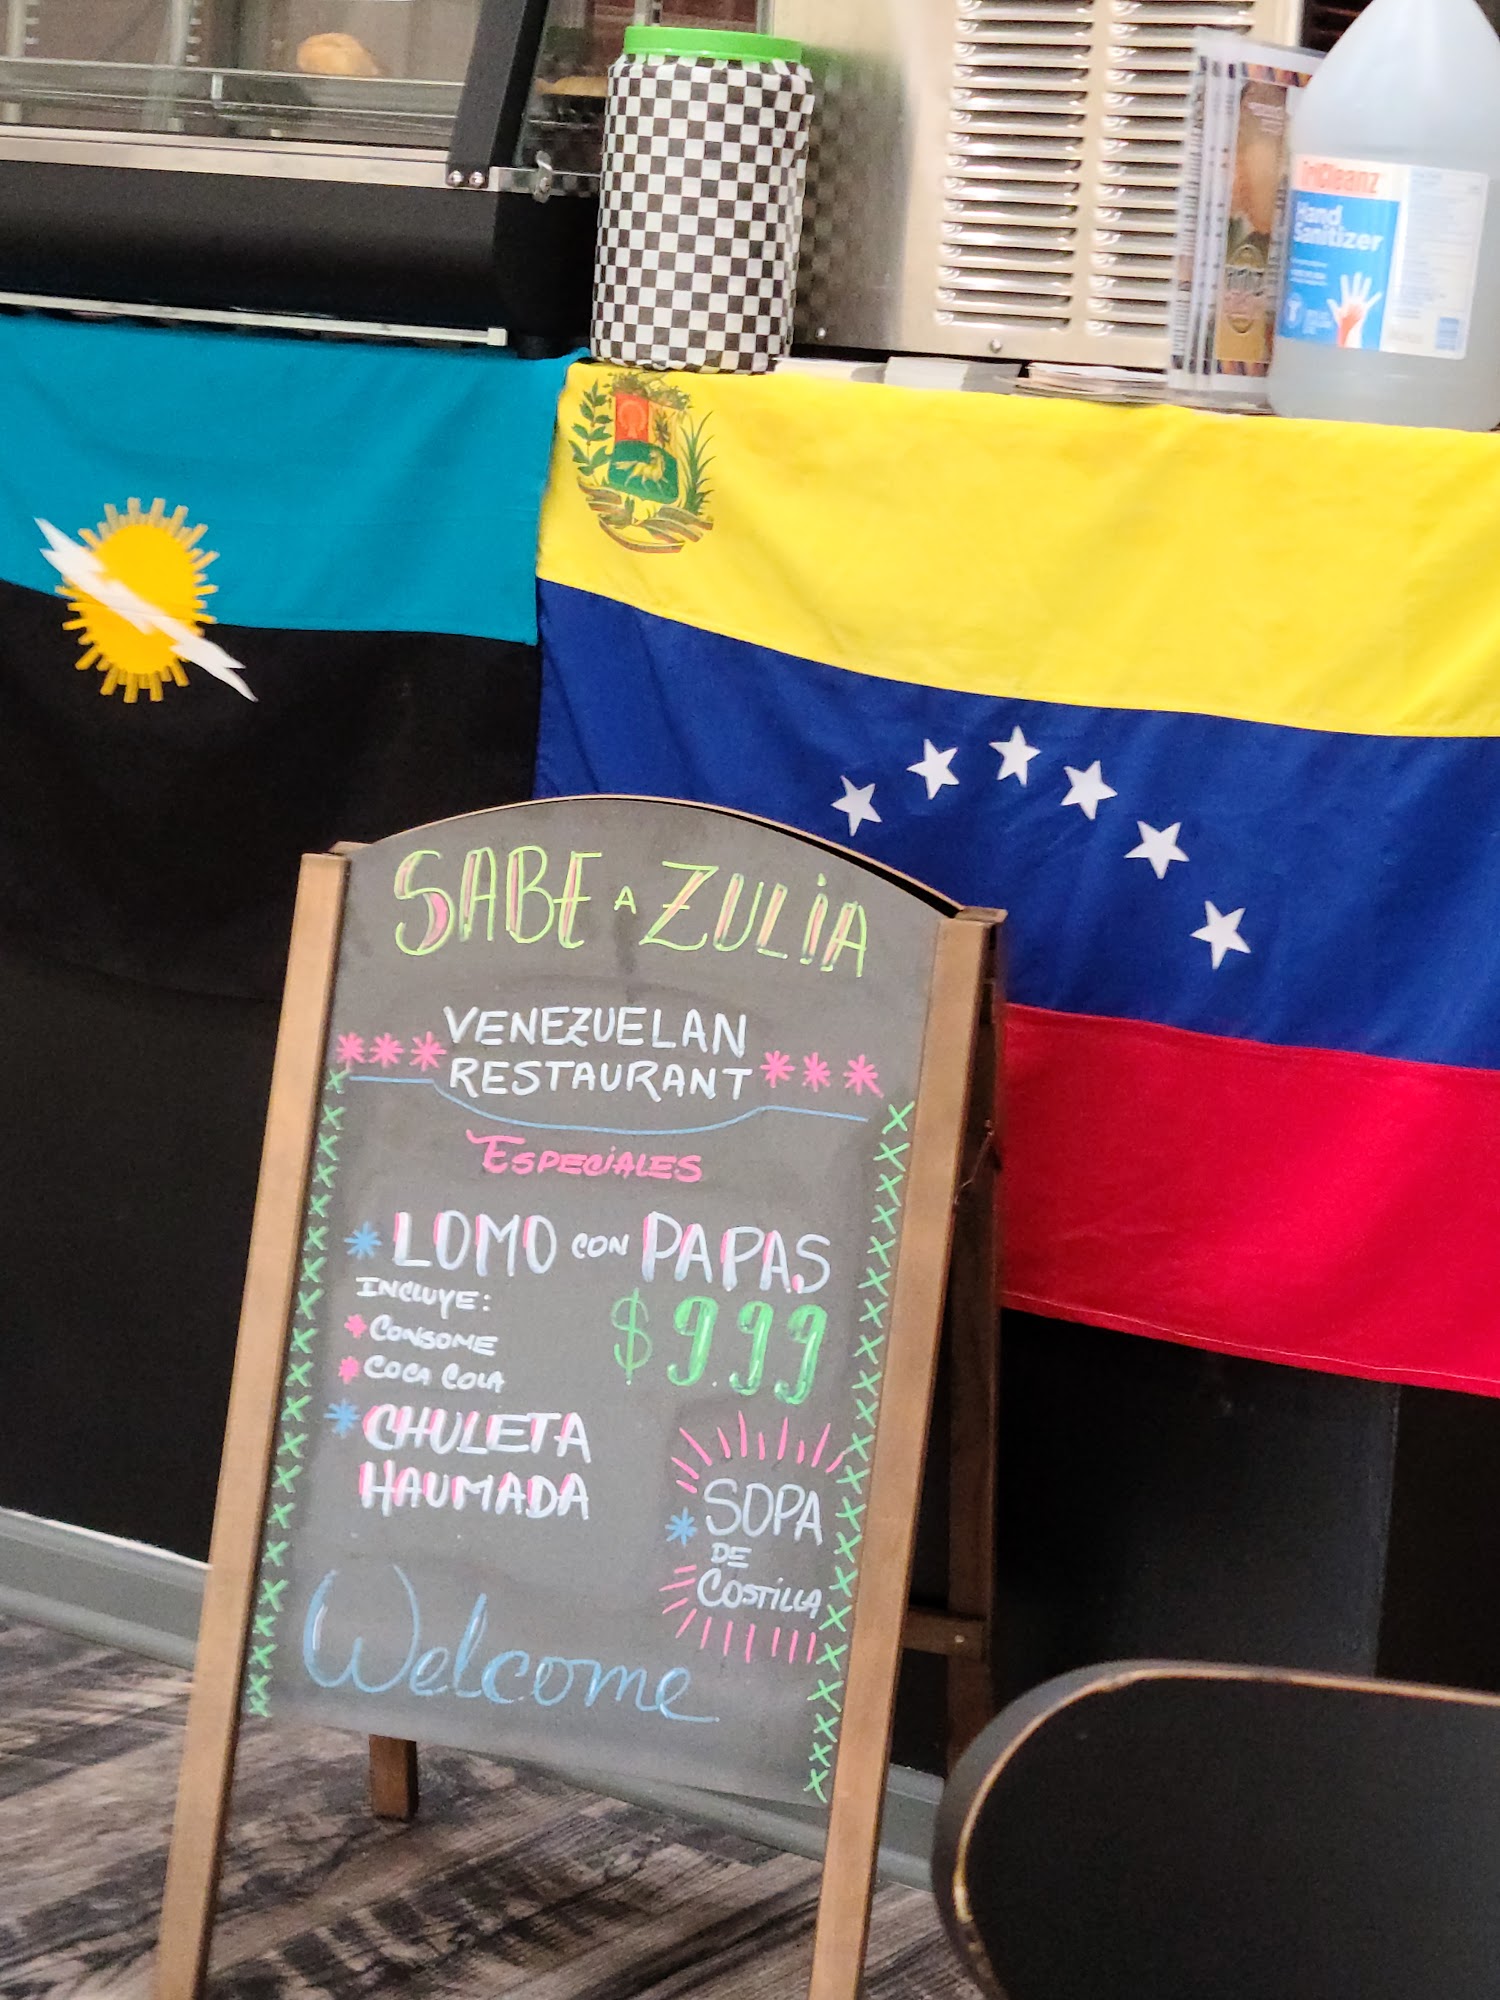 inCleanz
Hand
Sanitizer
SABE A ZULiA
VENEZUELAN
RESTAURANT
ESPECiALES
LOMO CON PAPAS
INCLUYE:
CONSOME
COCA COLA
$9.99
CHULETA
HAUMADA
SOPA
DE
COSTiLLA
Welcome